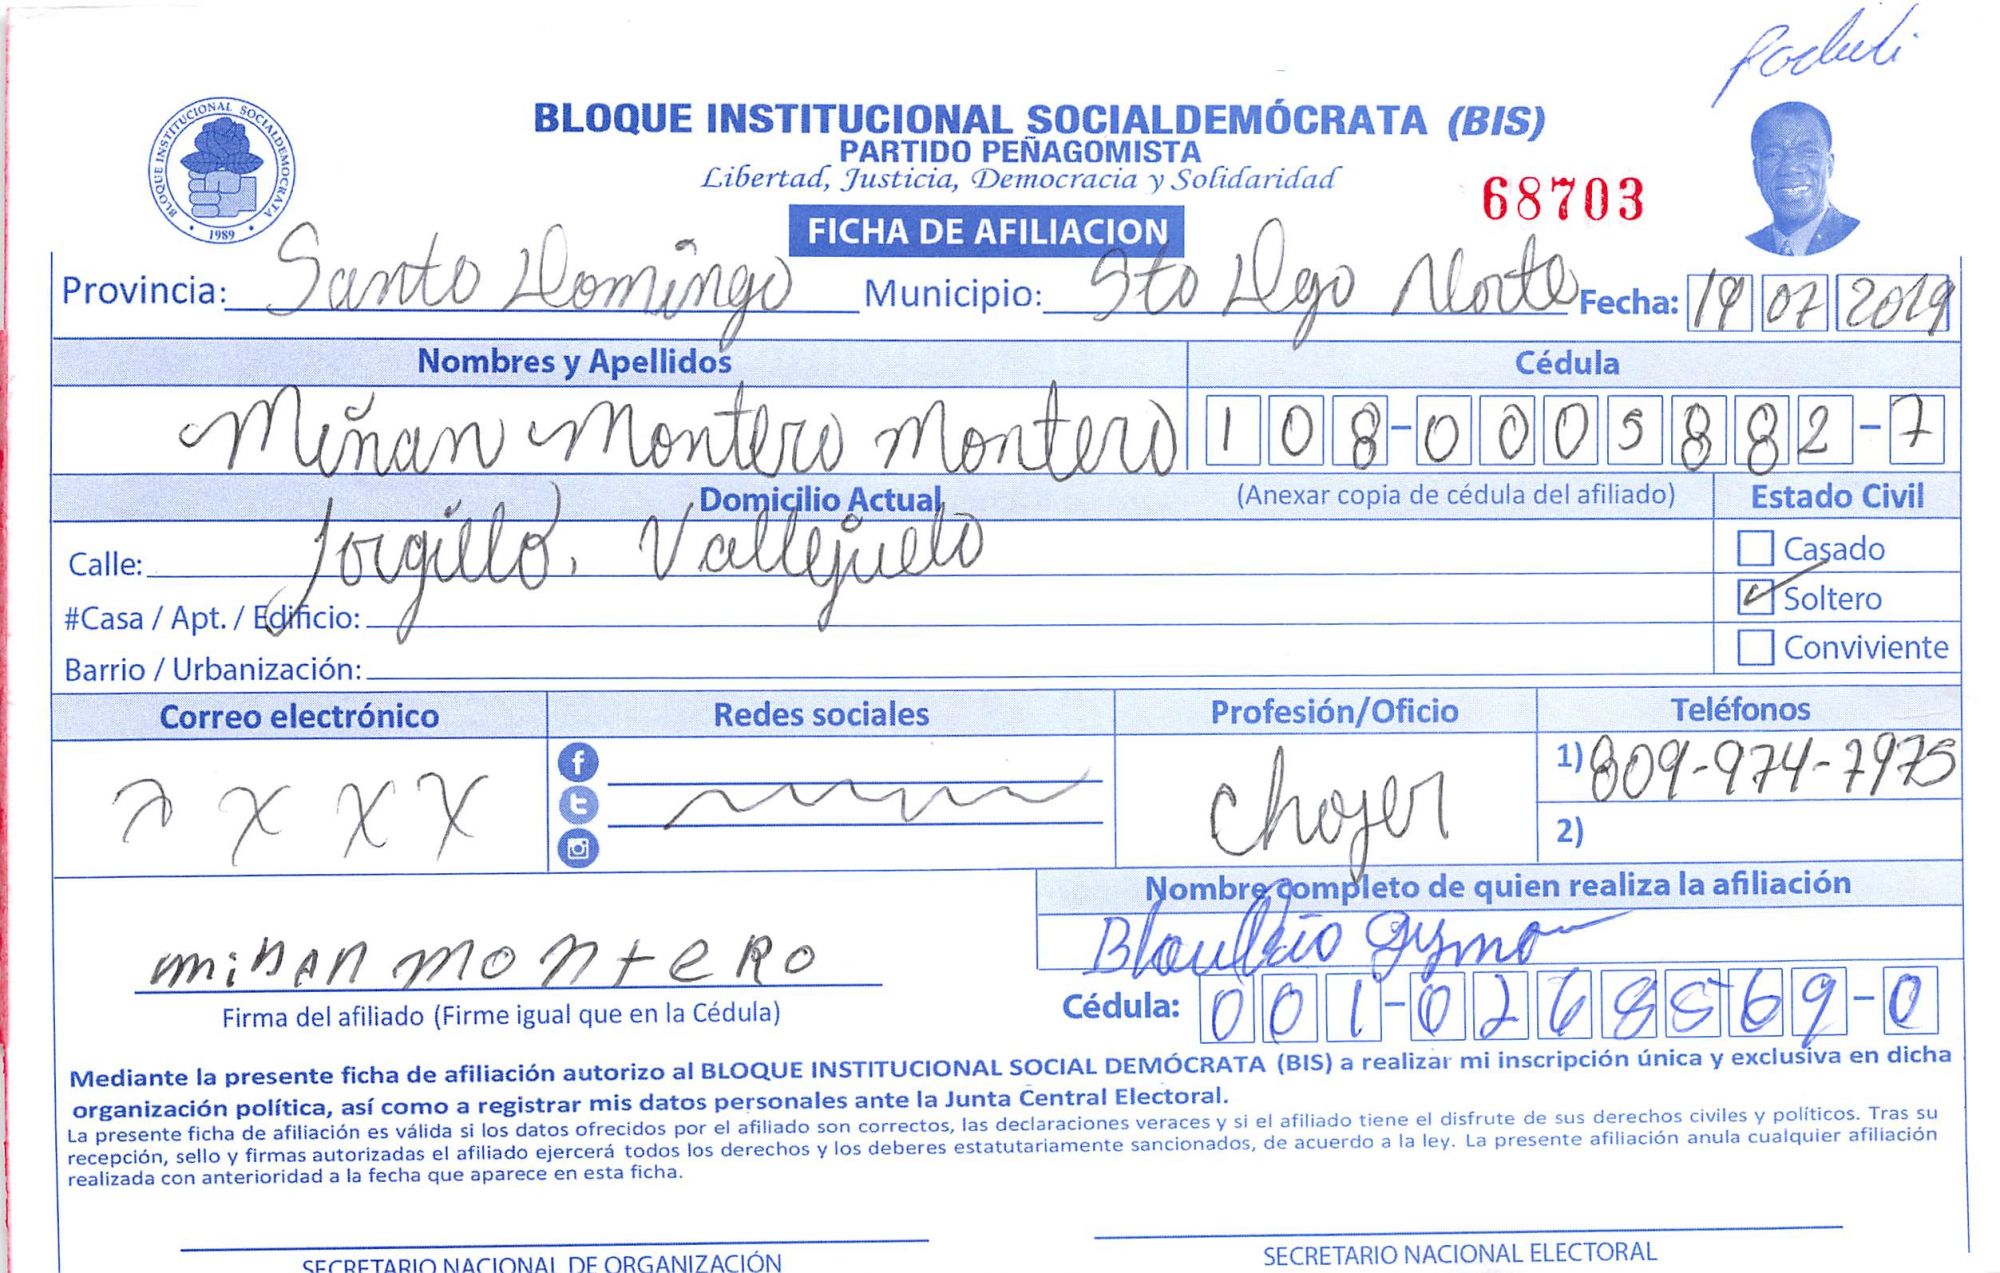 BLOQUE INSTITUCIONAL SOCIALDEMÓCRATA
1989
BLOQUE INSTITUCIONAL SOCIALDEMÓCRATA (BIS)
PARTIDO PEÑAGOMISTA
Libertad, Justicia, Democracia y Solidaridad
68703
FICHA DE AFILIACION
Provincia: Santo Domingo Municipio: Sto Dgo Norte Fecha: 19 07 2019
Nombres y Apellidos Cédula
Miñan Montero Montero 108-0005882-7
Domicilio Actual (Anexar copia de cédula del afiliado) Estado Civil
Calle: Jorgillo, Vallejuelo Casado
#Casa / Apt. / Edificio: Soltero
Barrio / Urbanización: Conviviente
Correo electrónico Redes sociales Profesión/Oficio Teléfonos
x x x x Chofer 1) 809-974-7975
2)
Nombre completo de quien realiza la afiliación
minan montero
Firma del afiliado (Firme igual que en la Cédula) Cédula: 001-0268569-0
Mediante la presente ficha de afiliación autorizo al BLOQUE INSTITUCIONAL SOCIAL DEMÓCRATA (BIS) a realizar mi inscripción única y exclusiva en dicha
organización política, así como a registrar mis datos personales ante la Junta Central Electoral.
La presente ficha de afiliación es válida si los datos ofrecidos por el afiliado son correctos, las declaraciones veraces y si el afiliado tiene el disfrute de sus derechos civiles y políticos. Tras su
recepción, sello y firmas autorizadas el afiliado ejercerá todos los derechos y los deberes estatutariamente sancionados, de acuerdo a la ley. La presente afiliación anula cualquier afiliación
realizada con anterioridad a la fecha que aparece en esta ficha.
SECRETARIO NACIONAL DE ORGANIZACIÓN SECRETARIO NACIONAL ELECTORAL